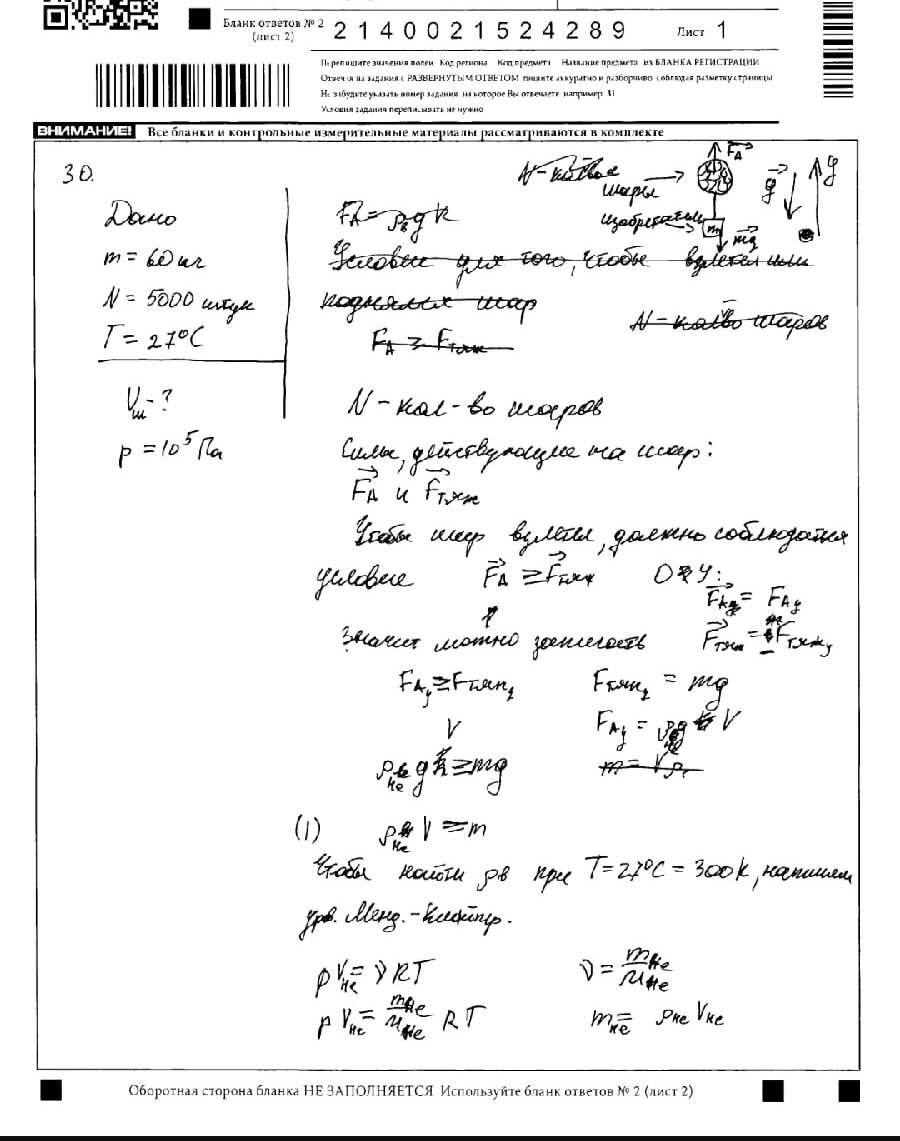 Бланк ответов № 2
(лист 2)
2140021524289
Лист 1
Перепишите значения полей Код региона Код предмета Название предмета из БЛАНКА РЕГИСТРАЦИИ
Отвечая на задания с РАЗВЕРНУТЫМ ОТВЕТОМ пишите аккуратно и разборчиво соблюдая разметку страницы
Не забудьте указать номер задания на которое Вы отвечаете например 31
Условия задания переписывать не нужно
ВНИМАНИЕ! Все бланки и контрольные измерительные материалы рассматриваются в комплекте
30.
Дано
m = 60 кг
N = 5000 штук
T = 27°C
Vш - ?
p = 10⁵ Па
шары
изобретатель
FA
m
mg
g
y
FA = ρв g
Условие для того, чтобы взлетел или
поднялся шар
FA ≥ Fтяж
N - кол-во шаров
N - кол-во шаров
Силы, действующие на шар:
FA и Fтяж
Чтобы шар взлетел, должно соблюдатся
условие FA ≥ Fтяж
OY:
FAy = FAy
Fтяж = Fтяжy
Значит можно записать
FAy ≥ Fтяжy Fтяжy = mg
FAy = ρHe g V
ρHe g V ≥ mg
m = Vρ
(1) ρHe V ≥ m
Чтобы найти ρв при T = 27°C = 300K, напишем
урв. Менд.-Клайпер.
pVHe = νRT ν = mHe/μHe
pVHe = mHe/μHe RT mHe = ρHe VHe
Оборотная сторона бланка НЕ ЗАПОЛНЯЕТСЯ Используйте бланк ответов № 2 (лист 2)